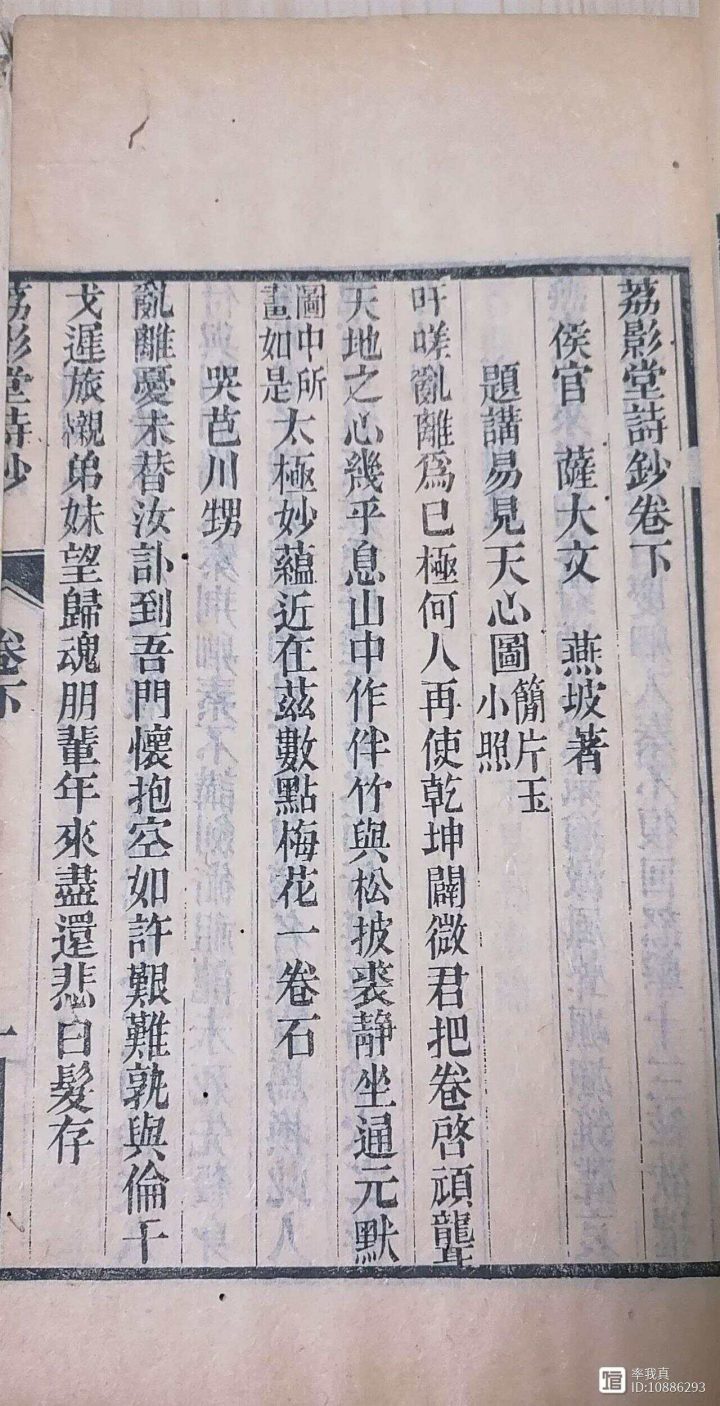 荔影堂詩鈔卷下
侯官 薩大文 燕坡著
題講易見天心圖簡片玉小照
吁嗟亂離爲已極何人再使乾坤闢微君把卷啓頑聾
天地之心幾乎息山中作伴竹與松披裘静坐通元默
圖中所畫如是太極妙蘊近在兹數點梅花一卷石
哭芭川甥
亂離憂未替汝訃到吾門懷抱空如許艱難孰與倫干
戈遲旅櫬弟妹望歸魂朋輩年來盡還悲白髮存
荔影堂詩鈔 卷下 一
率我真
ID:10886293